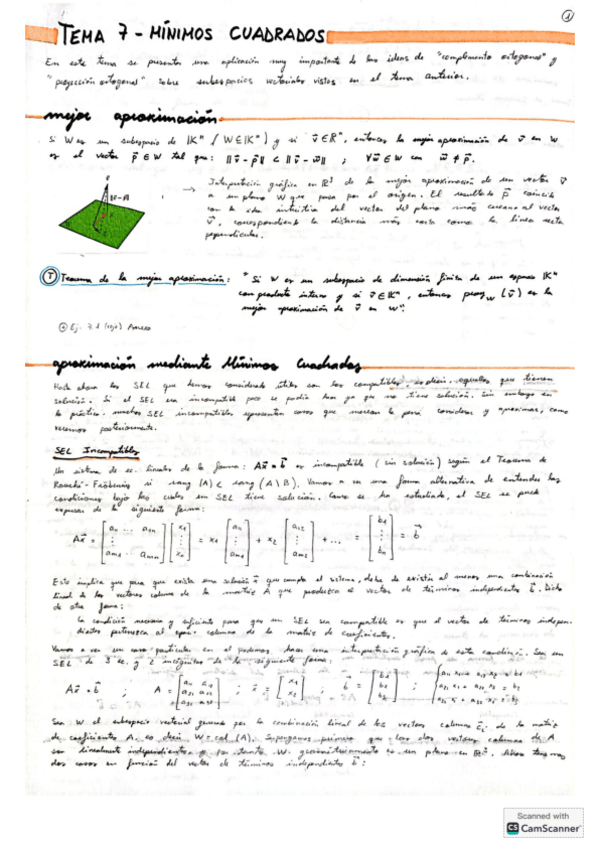 1
TEMA 7 - MÍNIMOS CUADRADOS
En este tema se presenta una aplicación muy importante de las ideas de "complemento ortogonal" y
"proyección ortogonal" sobre subespacios vectoriales vistos en el tema anterior.
mejor aproximación
Si W es un subespacio de ℝⁿ / W∈ℝⁿ) y si v⃗∈ℝⁿ, entonces la mejor aproximación de v⃗ en W
es el vector p⃗∈W tal que: ‖v⃗-p⃗‖ < ‖v⃗-w⃗‖ ; ∀w⃗∈W con w⃗≠p⃗.
→ Interpretación gráfica en ℝ³ de la mejor aproximación de un vector v⃗
a un plano W que pasa por el origen. El resultado p⃗ coincide
con la idea intuitiva del vector del plano más cercano al vector
v⃗, correspondiendo la distancia más corta como la línea recta
perpendicular.
T Teorema de la mejor aproximación: "Si W es un subespacio de dimensión finita de un espacio ℝⁿ
con producto interno y si v⃗∈ℝⁿ, entonces proy_W (v⃗) es la
mejor aproximación de v⃗ en W".
Ej. 7.1 Anexo
aproximación mediante Mínimos Cuadrados
Hasta ahora los SEL que hemos considerado útiles son los compatibles, es decir, aquellos que tienen
solución. Si el SEL era incompatible poco se podía hacer ya que no tiene solución. Sin embargo en
la práctica muchos SEL incompatibles representan casos que merecen la pena considerar y aproximar, como
veremos posteriormente.
SEL Incompatibles
Un sistema de ec. lineales de la forma: Ax⃗ = b⃗ es incompatible (sin solución) según el Teorema de
Rouché-Fröbenius si rang (A) < rang (A\B). Vamos a ver una forma alternativa de entender las
condiciones bajo las cuales un SEL tiene solución. Como se ha estudiado, el SEL se puede
expresar de la siguiente forma:
Esto implica que para que exista una solución que cumpla el sistema, debe de existir al menos una combinación
lineal de los vectores columna de la matriz A que produzca el vector de términos independientes b⃗. Dicho
de otra forma:
la condición necesaria y suficiente para que un SEL sea compatible es que el vector de términos indepen-
dientes pertenezca al espacio columna de la matriz de coeficientes.
Vamos a ver un caso particular en el podemos hacer una interpretación gráfica de esta condición. Sea un
SEL de 3 ec. y 2 incógnitas de la siguiente forma:
Ax⃗ = b⃗ ;
Sea W el subespacio vectorial generado por la combinación lineal de los vectores columna de la matriz
de coeficientes A, es decir W = col (A). Supongamos primero que los dos vectores columna de A
son linealmente independientes y por tanto W geométricamente es un plano en ℝ³. Ahora tenemos
dos casos en función del vector de términos independientes b⃗:
Scanned with
CS CamScanner